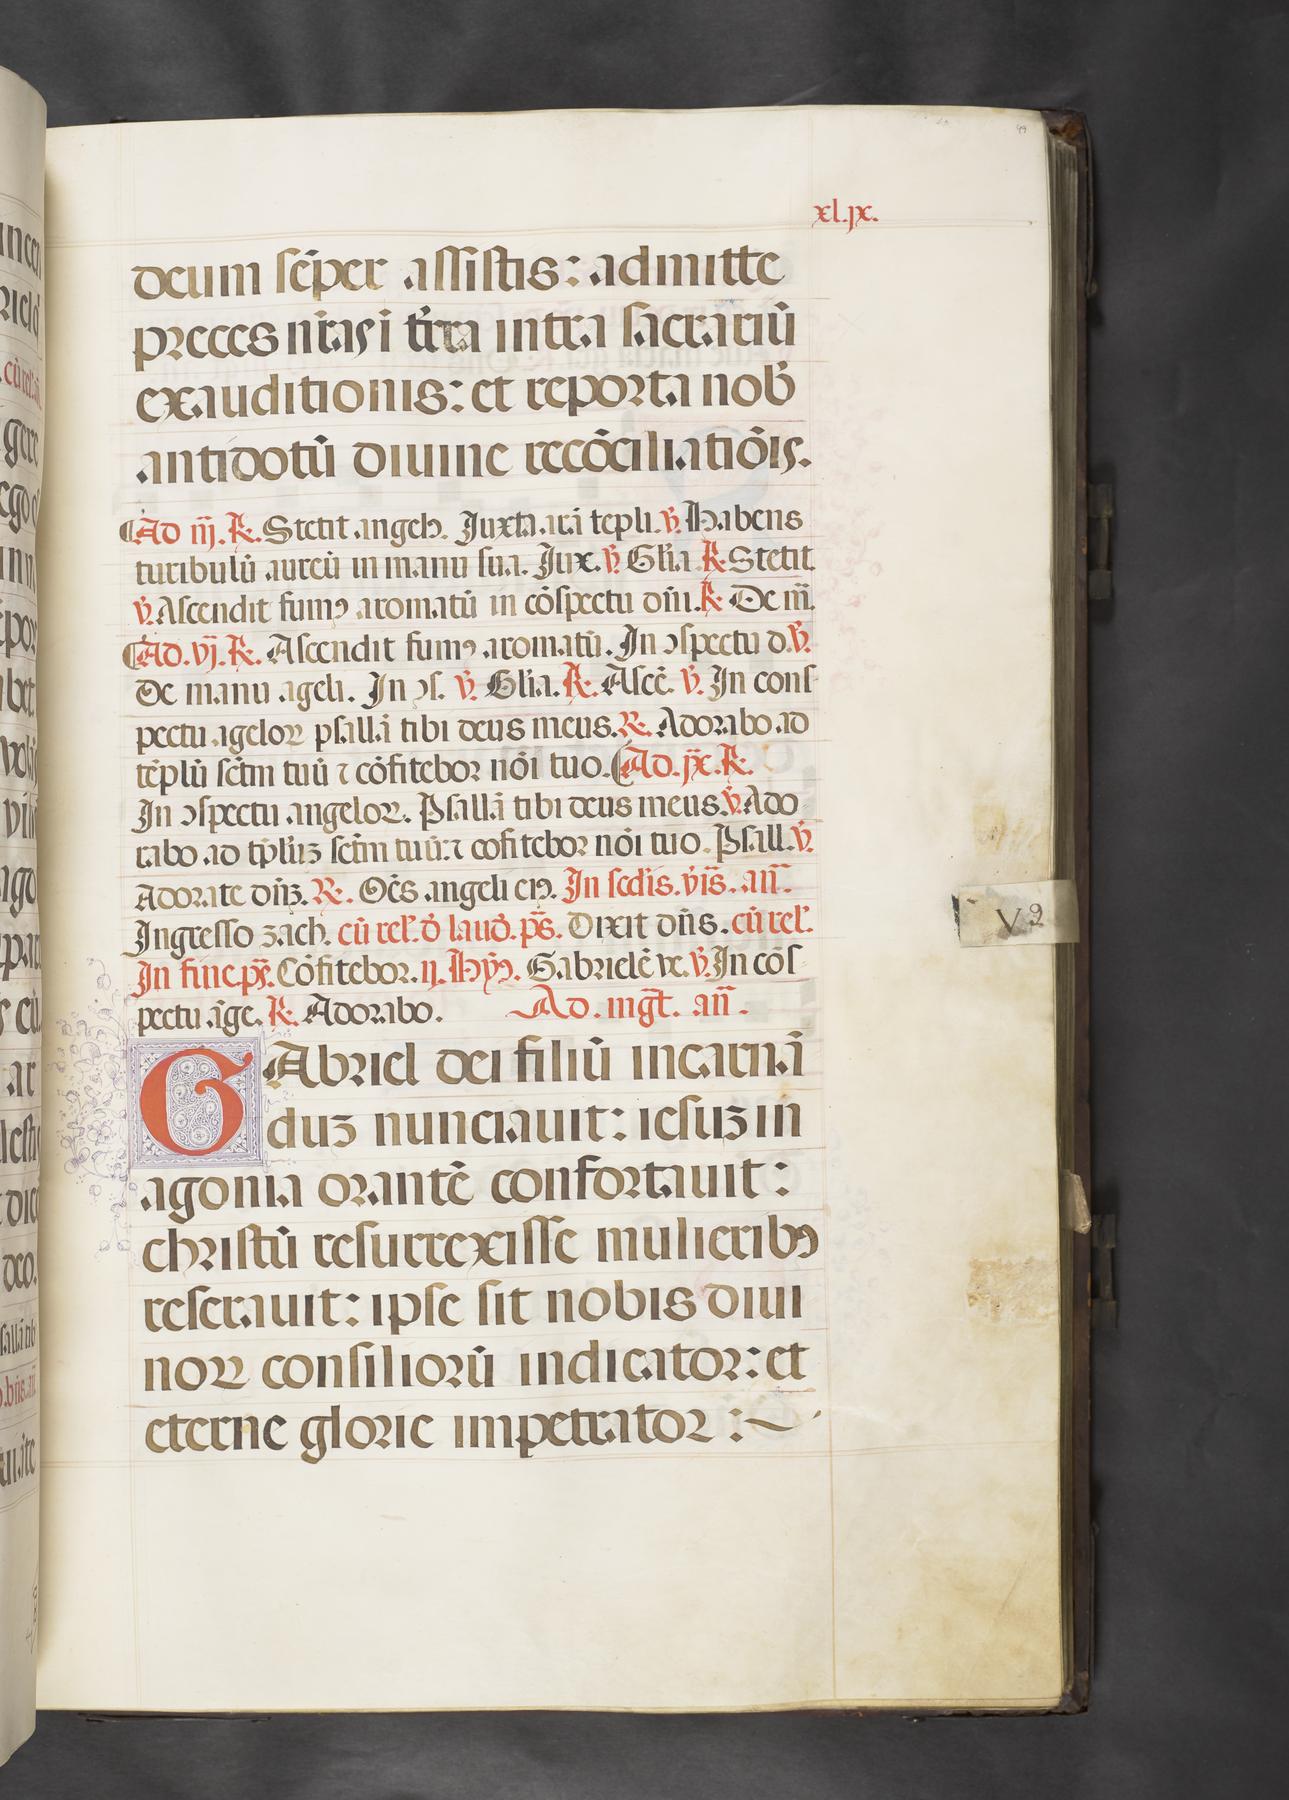 xl.jx.
deum sēper assistis: admitte
preces nr̄as i tr̄ra intra sacrariū
exauditionis: et reporta nob̄
antidotū diuine recōciliatiōis.
Ad iij. ℟. Stetit angel9. Juxta arā tēpli. ℣. Habens
turibulū aureū in manu sua. Jux. ℣. Gl̄ia. ℟. Stetit
℣. Ascendit fum9 aromatū in cōspectu dn̄i. ℟. De m̄.
Ad. vj. ℟. Ascendit fum9 aromatū. In ꝯspectu d. ℣.
De manu āgeli. In ꝯs. ℣. Gl̄ia. ℟. Ascē. ℣. In cons
pectu āgeloꝝ psallā tibi deus meus. ℟. Adorabo ad
tēplū sc̄tm tuū ⁊ cōfitebor nōi tuo. Ad. jx. ℟.
In ꝯspectu angeloꝝ. Psallā tibi deus meus. ℣. Ado
rabo ad tp̄luꝫ sc̄tm tuū: ⁊ cōfitebor nōi tuo. Psall. ℣.
Adorate dn̄ꝫ. ℟. Oēs angeli ei9. In sedis. vīs. an̄.
Ingresso zach. cū rel'. d̄ laud. ps̄. Dixit dn̄s. cū rel'.
In fine ps̄. Cōfitebor. ij. Hy9. Gabrielē ve. ℣. In cōs
pectu āge. ℟. Adorabo. Ad. mgt̄. an̄.
GAbriel dei filiū incarnā
duꝫ nunciauit: iesuꝫ in
agonia orantē confortauit:
christū resurrexisse mulierib9
reserauit: ipse sit nobis diui
noꝝ consiliorū indicator: et
eterne glorie impetrator:
V9
49